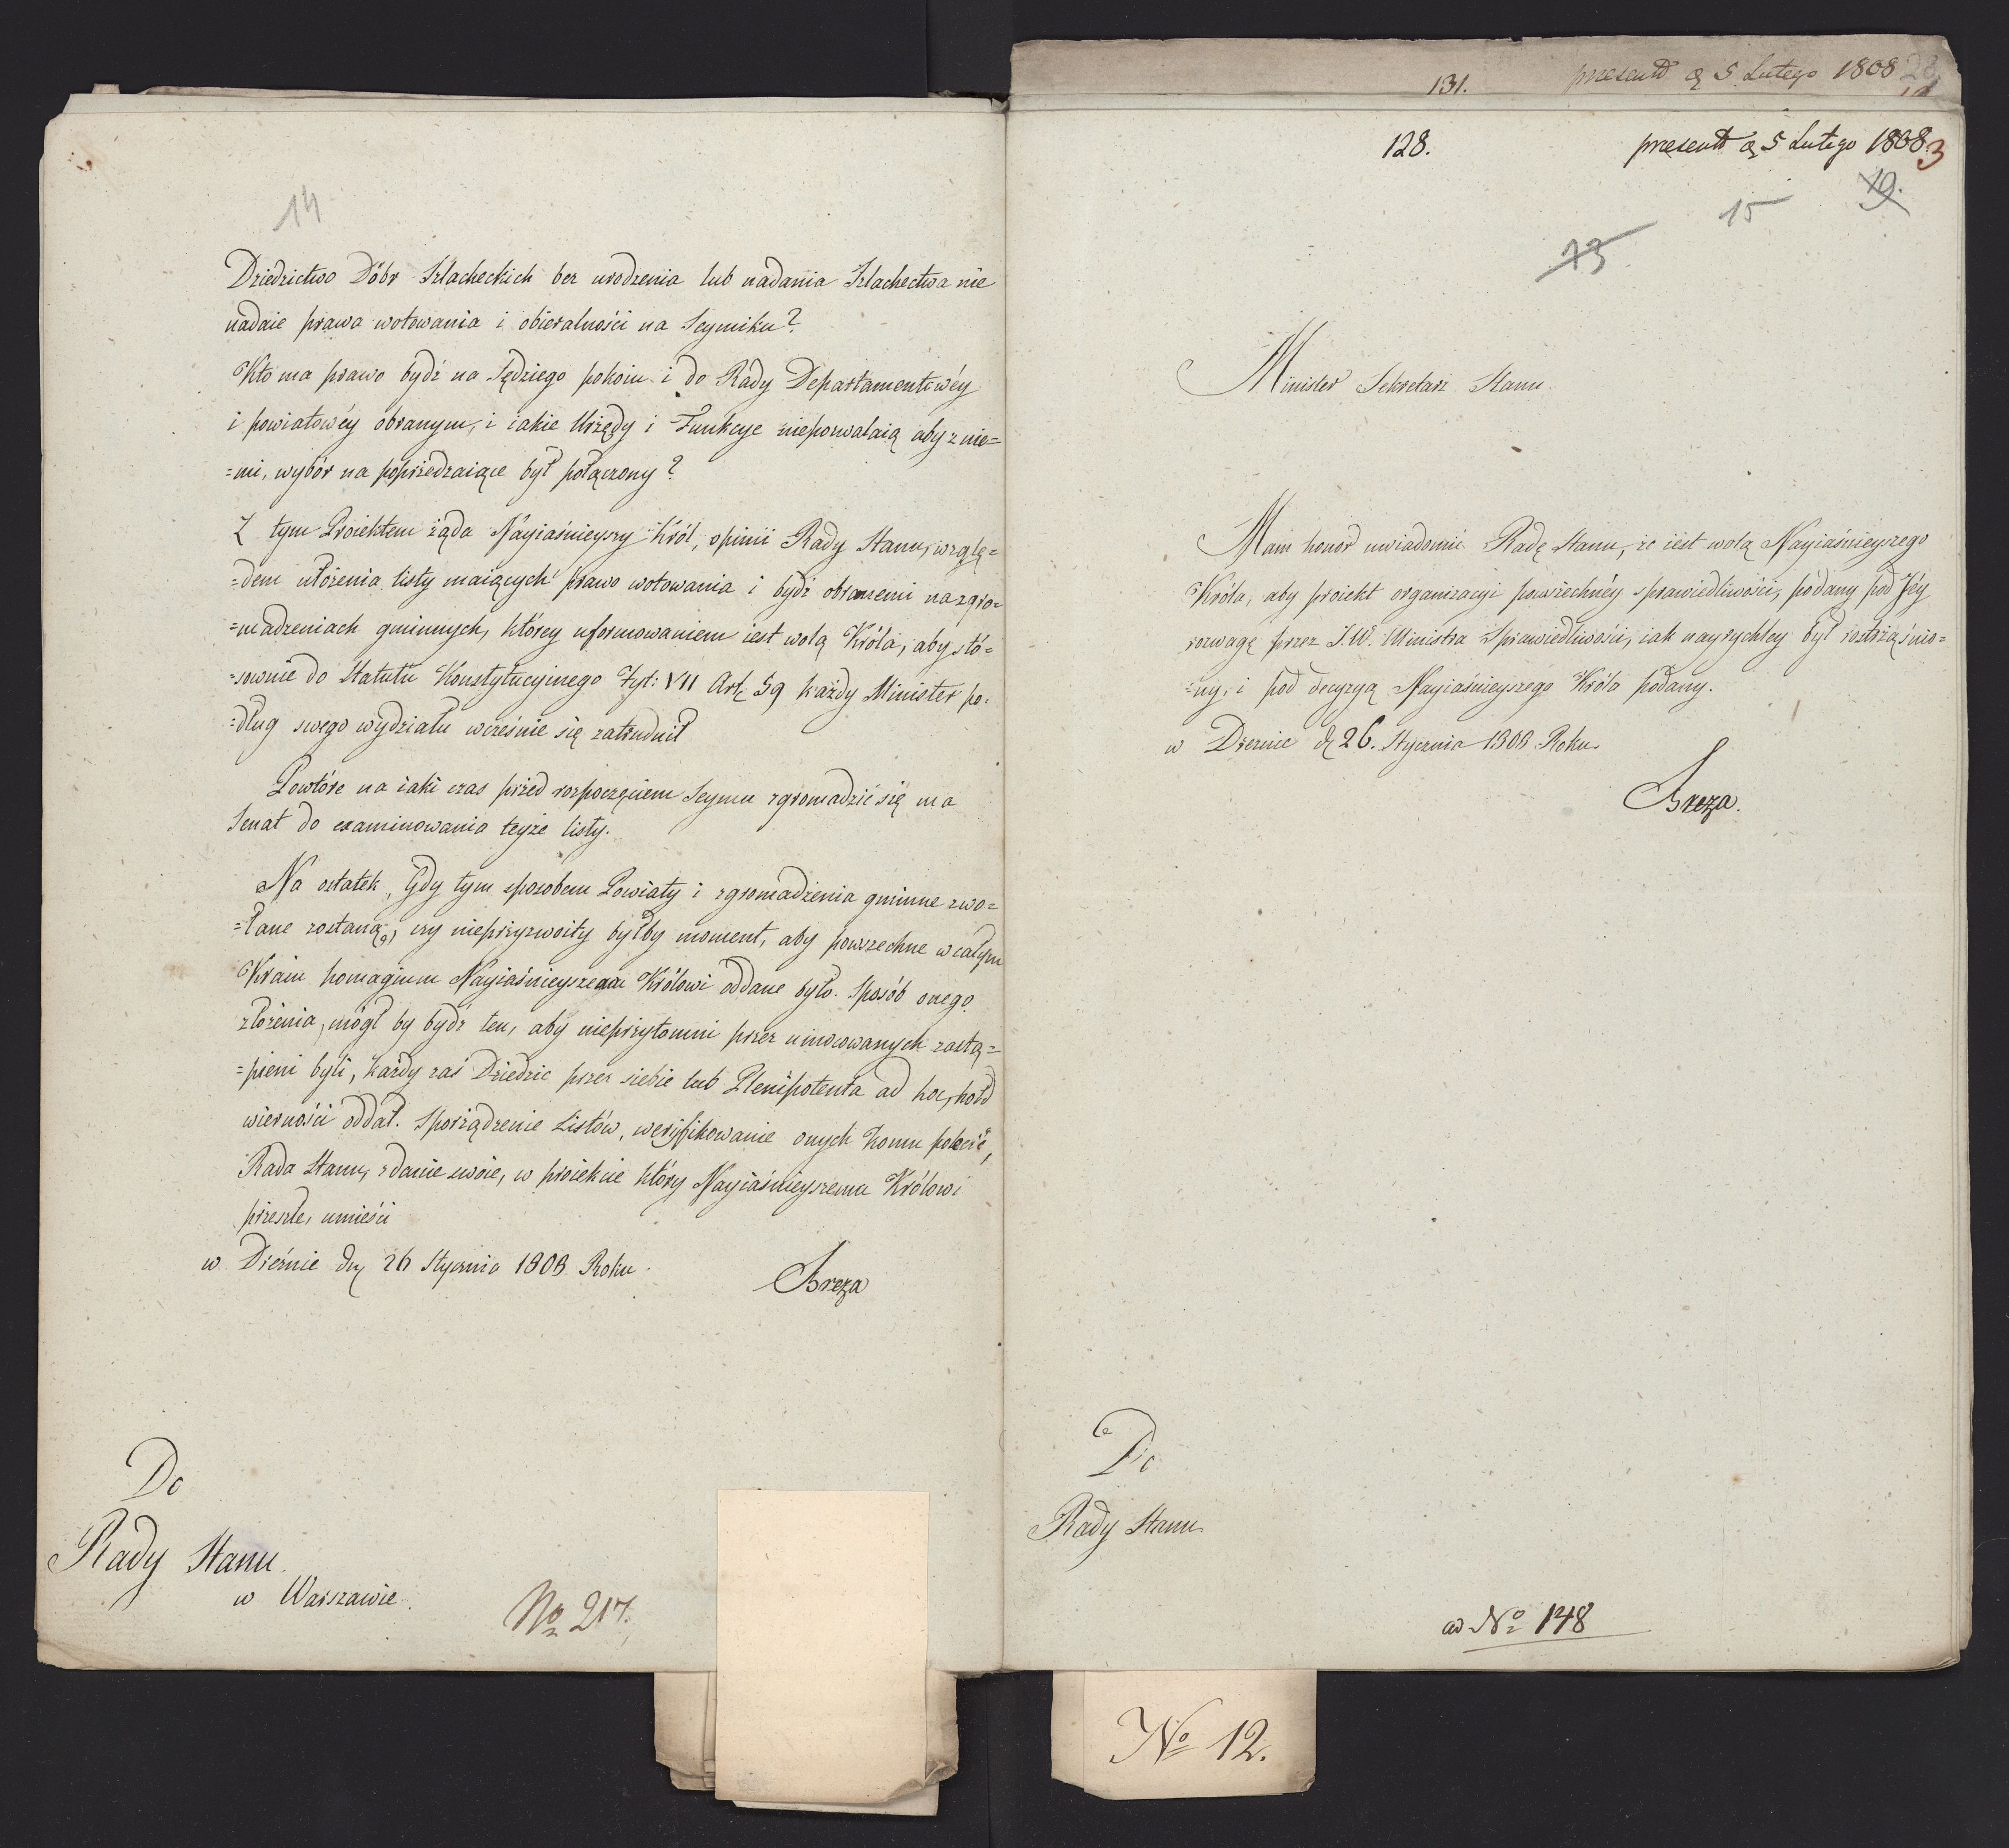 14
Dziedzictwo Dóbr Szlacheckich bez urodzenia lub nadania Szlachectwa nie
nadaie prawa wotowania i obieralności na Seymiku?
Kto ma prawo bydź na Sędziego pokoiu i do Rady Departamentowéy
i powiatowéy obranym, i iakie Urzędy i Funkcye niepozwalaią aby z nie=
=mi, wybór na poprzedzaiące był połączony?
Z tym Proiektem żąda Nayiaśnieyszy Król, opinii Rady Stanu, wzglę=
=dem ułożenia listy maiących prawo wotowania i bydź obranemi na zgro=
=madzeniach gminnych, którey uformowaniem iest wolą Króla, aby stó=
=sownie do Statutu Konstytucyinego Tyt: VII Art. 59 każdy Minister po=
=dług swego wydziału wcześnie się zatrudnił
Powtóre na iaki czas przed rozpoczęciem Seymu zgromadzić się ma
Senat do examinowania teyże listy.
Na ostatek, Gdy tym sposobem Powiaty i zgromadzenia gminne zwo=
=łane zostaną, czy nieprzyzwoity byłby moment, aby powszechne w całym
Kraiu homagium Nayiaśnieyszemu Królowi oddane było. Sposób onego
złożenia, mógł by bydź ten, aby nieprzytomni przez umocowanych zastą=
=pieni byli, każdy zaś Dziedzic przez siebie lub Plenipotenta ad hoc, hołd
wierności oddał. Sporządzenie Listów, weryfikowanie onych komu polecić,
Rada Stanu, zdanie swoie, w proiekcie który Nayiaśnieyszemu Królowi
prześle, umieści
w Dreźnie dn 26 Stycznia 1808 Roku.
Breza
Do
Rady Stanu
w Warszawie.
No 217.
131.
presentt d 5 Lutego 1808
128.
presentt d 5 Lutego 1808
3
19.
15
13
Minister Sekretarz Stanu
Mam honor uwiadomić Radę Stanu, że iest wolą Nayiaśnieyszego
Króla, aby proiekt organizacyi powszechnéy sprawiedliwości, podany pod Jéy
rozwagę przez J.W. Ministra Sprawiedliwości, iak nayrychley był roztrząśnio=
=ny, i pod decyzyą Nayiaśnieyszego Króla podany.
w Dreznie d 26. Stycznia 1808 Roku.
Breza.
Do
Rady Stanu
ad No 148
No 12.